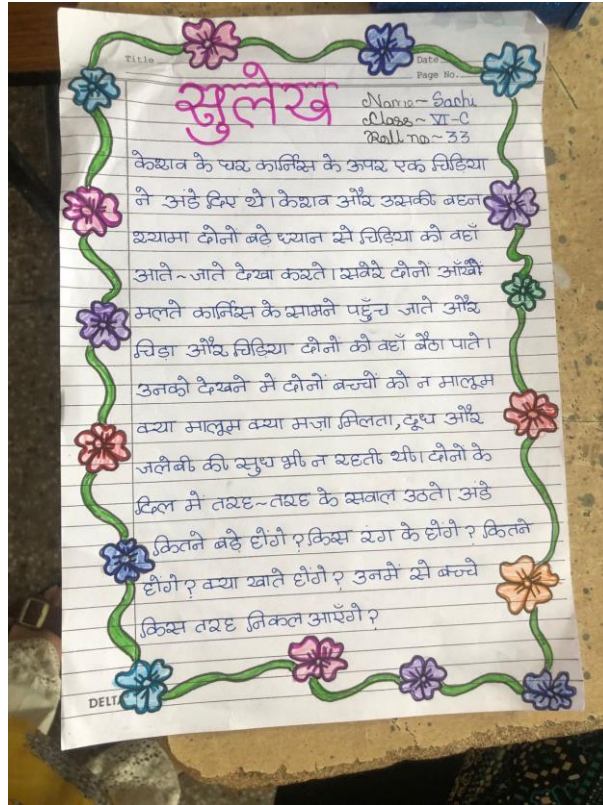 Title
Date
Page No.
सुलेख
Name~ Sachi
Class ~ VI-C
Roll no ~ 33
केशव के घर कार्निस के ऊपर एक चिड़िया
ने अंडे दिए थे। केशव और उसकी बहन
श्यामा दोनों बड़े ध्यान से चिड़िया को वहाँ
आते~जाते देखा करते। सवेरे दोनों आँखें
मलते कार्निस के सामने पहुँच जाते और
चिड़ा और चिड़िया दोनों को वहाँ बैठा पाते।
उनको देखने मे दोनों बच्चों को न मालूम
क्या मालूम क्या मज़ा मिलता, दूध और
जलेबी की सुध भी न रहती थी। दोनों के
दिल में तरह~तरह के सवाल उठते। अंडे
कितने बड़े होंगे? किस रंग के होंगे? कितने
होंगे? क्या खाते होंगे? उनमें से बच्चे
किस तरह निकल आएँगे?
DELTA